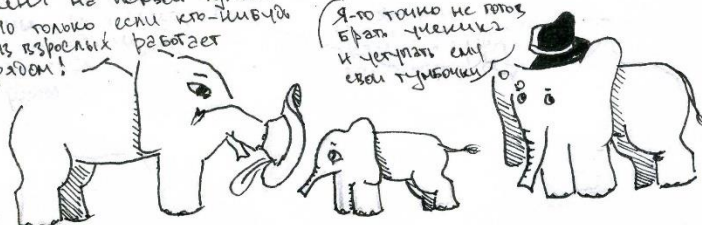 на первой
но только если кто-нибудь
из взрослых работает
рядом!
Я-то точно не готов
брать ученика
и уступать ему
свои тумбочки